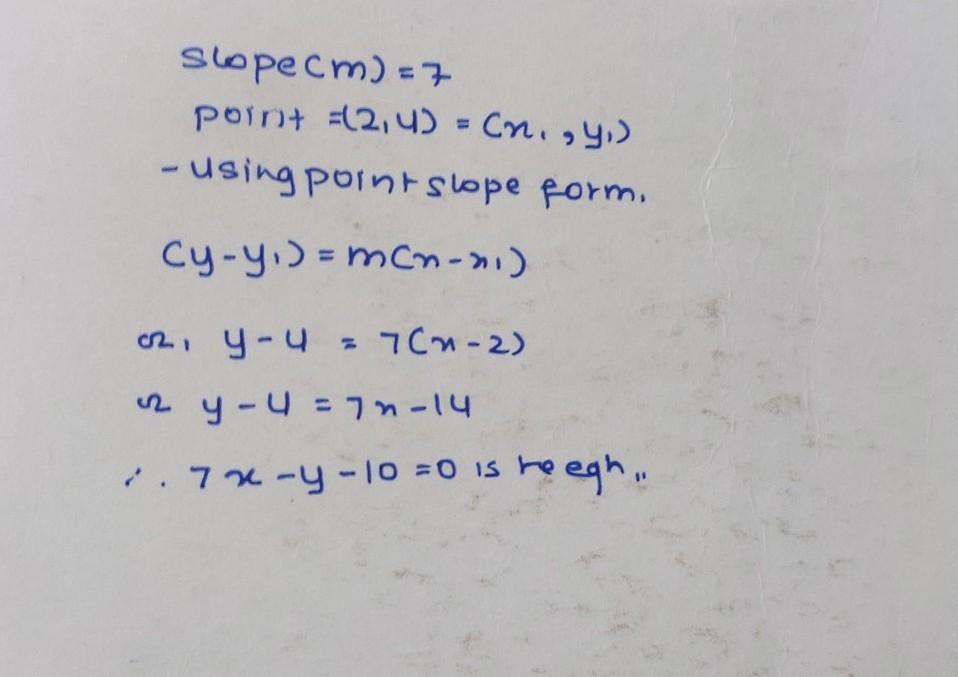 slope(m) = 7
point = (2,4) = (x₁, y₁)
- using point slope form.
(y-y₁) = m(x-x₁)
or, y-4 = 7(x-2)
or y-4 = 7x-14
∴ 7x-y-10=0 is re eqn,,